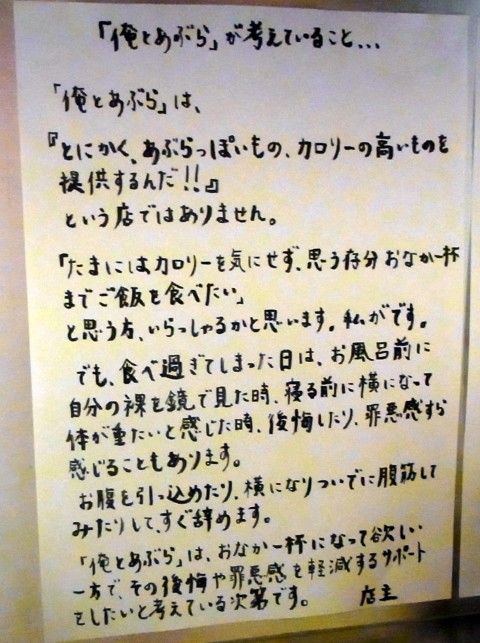 「俺とあぶら」が考えていること...
「俺とあぶら」は、
『とにかく、あぶらっぽいもの、カロリーの高いものを
提供するんだ!!』
という店ではありません。
「たまにはカロリーを気にせず、思う存分おなか一杯
までご飯を食べたい」
と思う方、いらっしゃるかと思います。私がです。
でも、食べ過ぎてしまった日は、お風呂前に
自分の裸を鏡で見た時、寝る前に横になって
体が重たいと感じた時、後悔したり、罪悪感すら
感じることもあります。
お腹を引っ込めたり、横になりついでに腹筋して
みたりして、すぐ辞めます。
「俺とあぶら」は、おなか一杯になって欲しい
一方で、その後悔や罪悪感を軽減するサポート
をしたいと考えている次第です。 店主